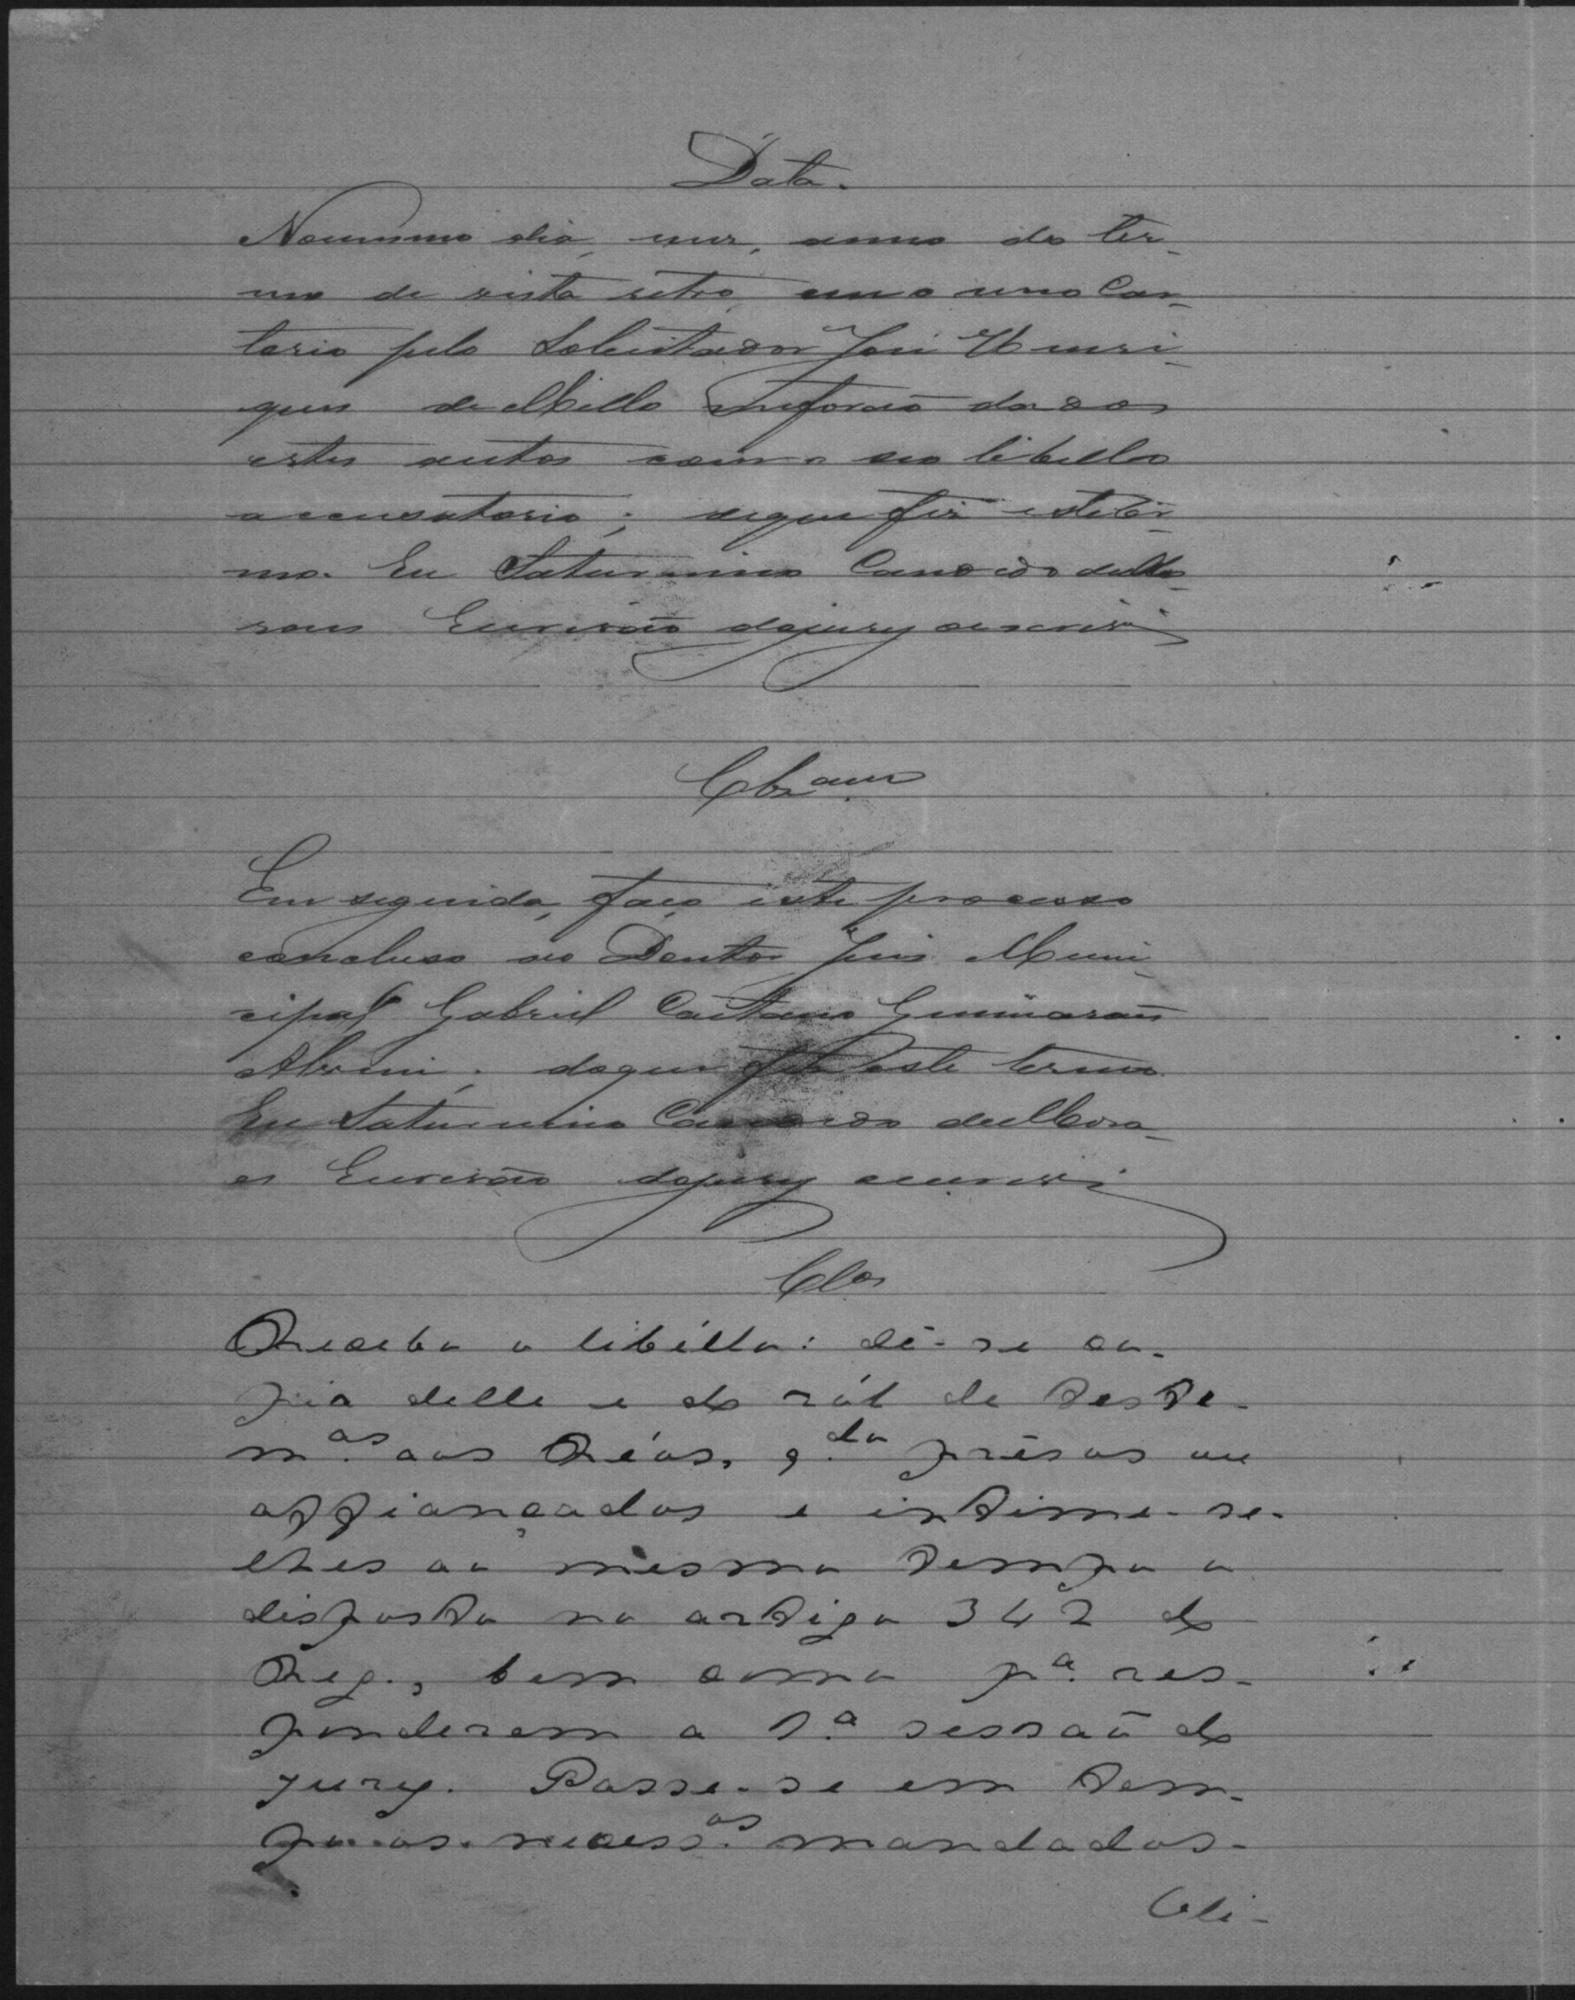 Data.
No mesmo dia, mez, anno do ter-
mo de vista retro, em o meo Car-
torio pelo Solicitador José Henri-
ques de Mello me forão dados
estes autos com o seo libello
accusatorio; do que fiz este ter-
mo. Eu Saturnino Candido de Mo-
raes Escrivão do jury o escrivi
Clz.am
Em seguida, faço este processo
concluso ao Doutor Juiz Muni-
cipal Gabriel Caetano Guimarães
; do que fiz este termo.
Eu Saturnino Candido de Mora-
es Escrivão do jury o escrivi
Clos
Recebo o libéllo: dê-se co-
pia delle e do ról de teste-
m.as aos Réos, q.do prêsos ou
affiançados e intime-se-
lhes ao mesmo tempo o
disposto no artigo 342 do
Reg., bem como p.a res-
ponderem a 1.a sessaõ do
jury. Passe-se em tem-
po os necess.os mandados.